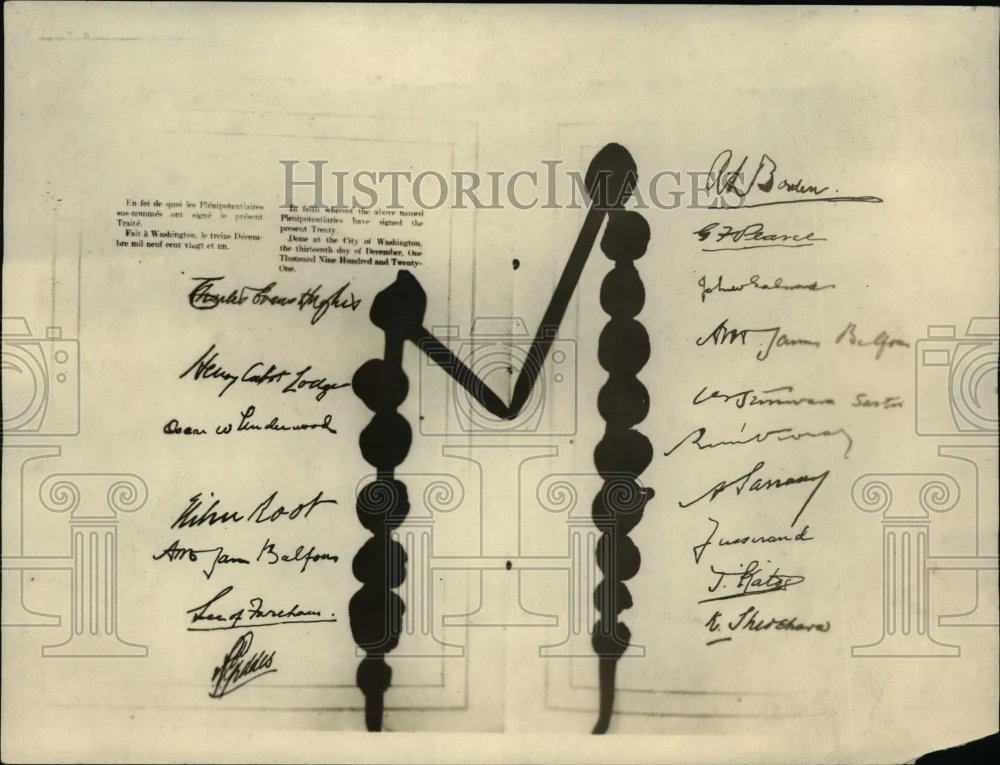 En foi de quoi les Plénipotentiaires
sus-nommés ont signé le présent
Traité.
Fait à Washington, le treize Décem-
bre mil neuf cent vingt et un.
In faith whereof the above named
Plenipotentiaries have signed the
present Treaty.
Done at the City of Washington,
the thirteenth day of December, One
Thousand Nine Hundred and Twenty-
One.
Charles Evans Hughes
Henry Cabot Lodge
Oscar W Underwood
Elihu Root
Arthur James Balfour
Lee of Fareham.
AGeddes
R L Borden.
G F Pearce
John W Salmond
Arthur James Balfour
Sastri
René Viviani
A Sarraut
Jusserand
T. Kato
K. Shidehara
HISTORIC IMAGES